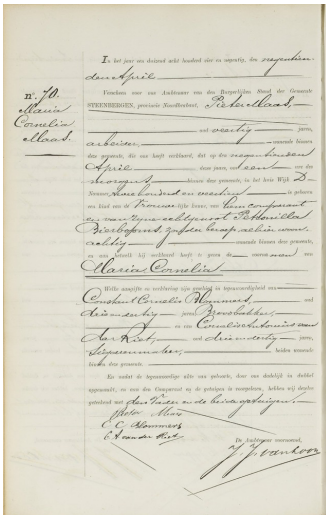 nº. 70.
Maria
Cornelia
Maas.
In het jaar een duizend acht honderd zes en negentig, den negentien-
den April
Verscheen voor ons Ambtenaar van den Burgerlijken Stand der Gemeente
STEENBERGEN, provincie Noordbrabant, Pieter Maas,
oud veertig jaren,
arbeider, wonende binnen
deze gemeente, die ons heeft verklaard, dat op den negentienden
April dezes jaars, ten een ure des
morgens binnen deze gemeente, in het huis Wijk D
Nummer honderd en is geboren
een kind van de Vrouwelijke kunne, van hem comparant
en van zijne echtgenoot Petronilla
Bierbooms, zonder beroep, alhier woon-
achtig wonende binnen deze gemeente,
en aan hetwelk hij verklaard heeft te geven de voornamen van
Maria Cornelia
Welke aangifte en verklaring zijn geschied in tegenwoordigheid van
Constant Cornelis Blommers, oud
drieendertig jaren, Broodbakker,
en van Cornelis Antonius van
der Riet, oud drieendertig jaren,
beiden wonende
binnen deze gemeente.
En nadat de tegenwoordige akte van geboorte, door ons dadelijk in dubbel
opgemaakt, en aan den Comparant en de getuigen is voorgelezen, hebben wij dezelve
geteekend met den Vader en de beide getuigen.
Pieter Maas
C. C. Blommers
C A van der Riet
De Ambtenaar voornoemd,
J. J. van Loon